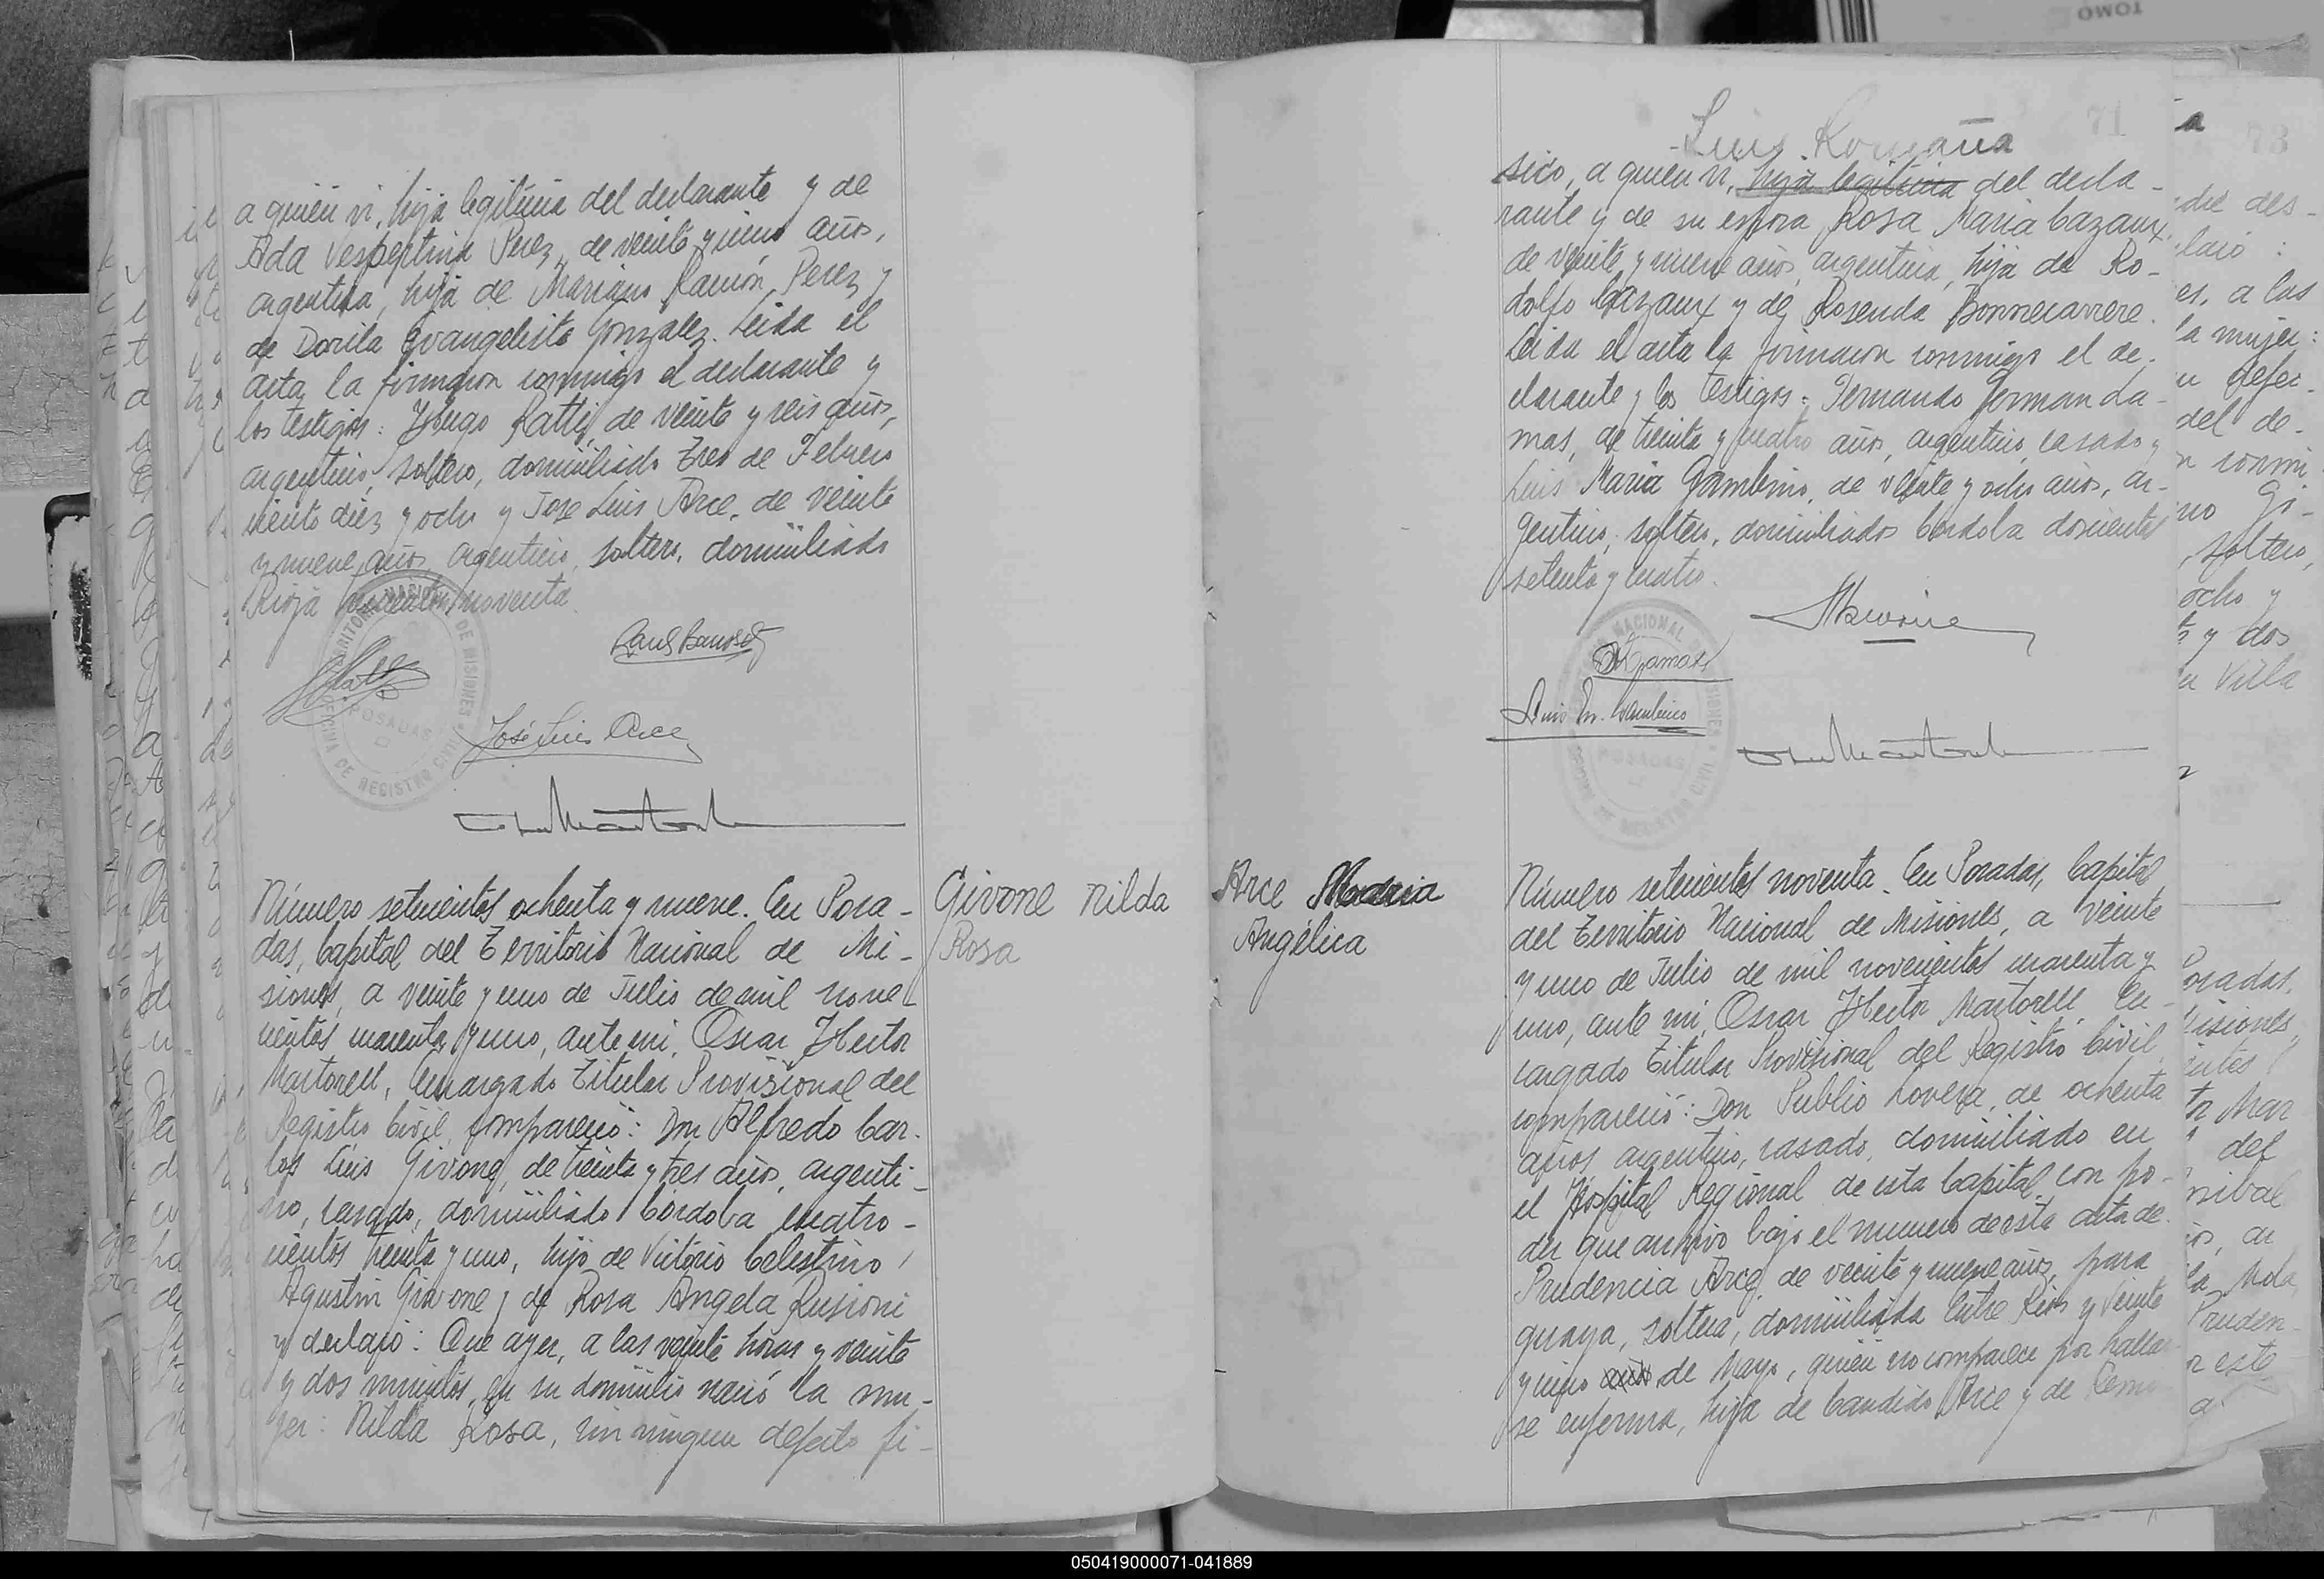 a quien vi, hija legitima del declarante y de
Ada Vespertina Perez, de veinte y cinco años,
argentina, hija de Mariano Ramón Perez y
de Dorila Evangelista Gonzalez. Leida el
acta la firmaron conmigo el declarante y
los testigos: Hugo Ratti, de veinte y seis años,
argentino, soltero, domiciliado Tres de Febrero
ciento diez y ocho y Jose Luis Arce, de veinte
y nueve años, argentino, soltero, domiciliado
Rioja noventa.
José Luis Arce
TERRITORIO NACIONAL DE MISIONES
POSADAS
OFICINA DE REGISTRO CIVIL
Número setecientos ochenta y nueve. En Posa-
das, Capital del Territorio Nacional de Mi-
siones, a veinte y uno de Julio de mil nove-
cientos cuarenta y uno, ante mi, Oscar Hector
Martorell, Encargado Titular Provisional del
Registro Civil, compareció: Don Alfredo Car-
los Luis Givone, de treinta y tres años, argenti-
no, casado, domiciliado Córdoba cuatro-
cientos treinta y uno, hijo de Victorio Celestino
Agustin Givone y de Rosa Angela Rusioni
y declaró: Que ayer, a las veinte horas y veinte
y dos minutos, en su domicilio nació la mu-
jer: Nilda Rosa, sin ningun defecto fi-
Givone Nilda
Rosa
Luis Romaña
71
sico, a quien vi, hija legitima del decla-
rante y de su esposa Rosa Maria Cazaux,
de veinte y nueve años, argentina, hija de Ro-
dolfo Cazaux y de Rosenda Bonnecarrere.
Leida el acta la firmaron conmigo el de-
clarante y los testigos: Fernando German La-
mas, de treinta y cuatro años, argentino, casado y
Luis Maria Gambino, de veinte y ocho años, ar-
gentino, soltero, domiciliados Córdoba doscientos
setenta y cuatro.
Luis M. Gambino
NACIONAL
POSADAS
Arce Maria
Angélica
Número setecientos noventa. En Posadas, Capital
del Territorio Nacional de Misiones, a veinte
y uno de Julio de mil novecientos cuarenta y
uno, ante mi, Oscar Hector Martorell, En-
cargado Titular Provisional del Registro Civil,
compareció: Don Publio Lovera, de ochenta
años, argentino, casado, domiciliado en
el Hospital Regional de esta Capital con po-
der que archivo bajo el numero de esta acta de
Prudencia Arce, de veinte y nueve años, para
guaya, soltera, domiciliada Entre Rios y Veinte
y cinco de Mayo, quien no comparece por hallar
se enferma, hija de Candido Arce y de
73
TOMO
050419000071-041889